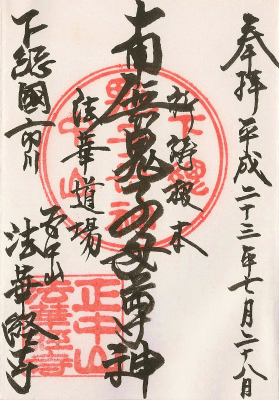 奉拝 平成二十三年七月二十八日
祈祷根本
南無鬼子母尊神
法華道場
下總國市川
正中山
法華経寺
正中山
法華経寺